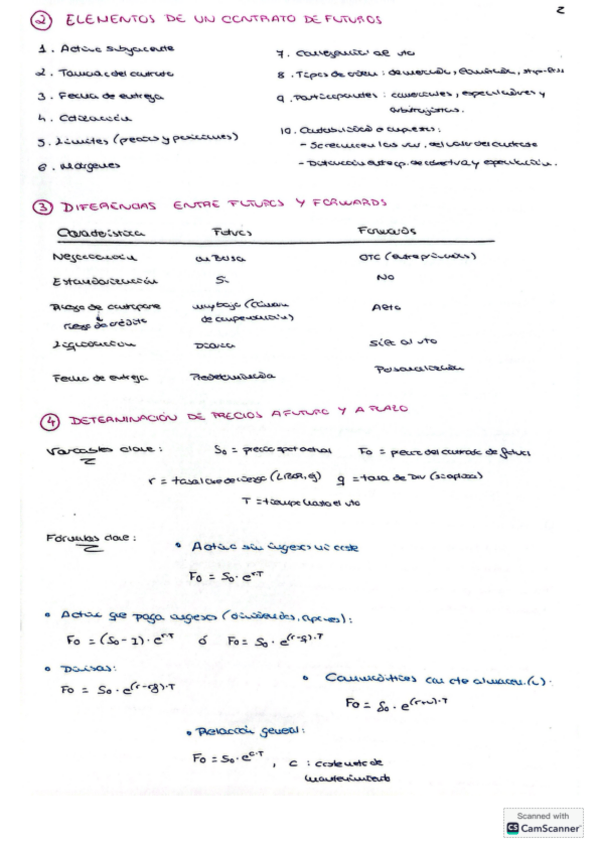 2
② ELEMENTOS DE UN CONTRATO DE FUTUROS
1. Activo subyacente
2. Tamaño del contrato
3. Fecha de entrega
4. Cotización
5. Límites (precios y posiciones)
6. Márgenes
7. Convergencia al vto
8. Tipos de orden: de mercado, limitada, stop-loss
9. Participantes: comerciales, especuladores y
arbitrajistas.
10. Contabilidad e impuestos:
- Se reconocen las var. del valor del contrato
- Distinción entre op. de cobertura y especulación.
③ DIFERENCIAS ENTRE FUTUROS Y FORWARDS
Característica Futuros Forwards
Negociación en Bolsa OTC (entre privados)
Estandarización Sí No
Riesgo de contraparte muy bajo (cámara Alto
riesgo de crédito de compensación)
Liquidación Diaria Sólo al vto
Fecha de entrega Predeterminada Personalización
④ DETERMINACIÓN DE PRECIOS A FUTURO Y A PLAZO
Variables clave: S₀ = precio spot actual F₀ = precio del contrato de futuros
r = tasa libre de riesgo (LIBOR, ej) q = tasa de Div (si aplica)
T = tiempo hasta el vto
Fórmulas clave:
• Activo sin ingresos ni coste
F₀ = S₀ · e^(r·T)
• Activo que paga ingresos (dividendos, cupones):
F₀ = (S₀ - I) · e^(r·T) ó F₀ = S₀ · e^((r-q)·T)
• Divisas:
F₀ = S₀ · e^((r-rf)·T)
• Commodities con cte almacen. (u):
F₀ = S₀ · e^((r+u)·T)
• Relación general:
F₀ = S₀ · e^(c·T), c: coste neto de
mantenimiento
Scanned with
CS CamScanner